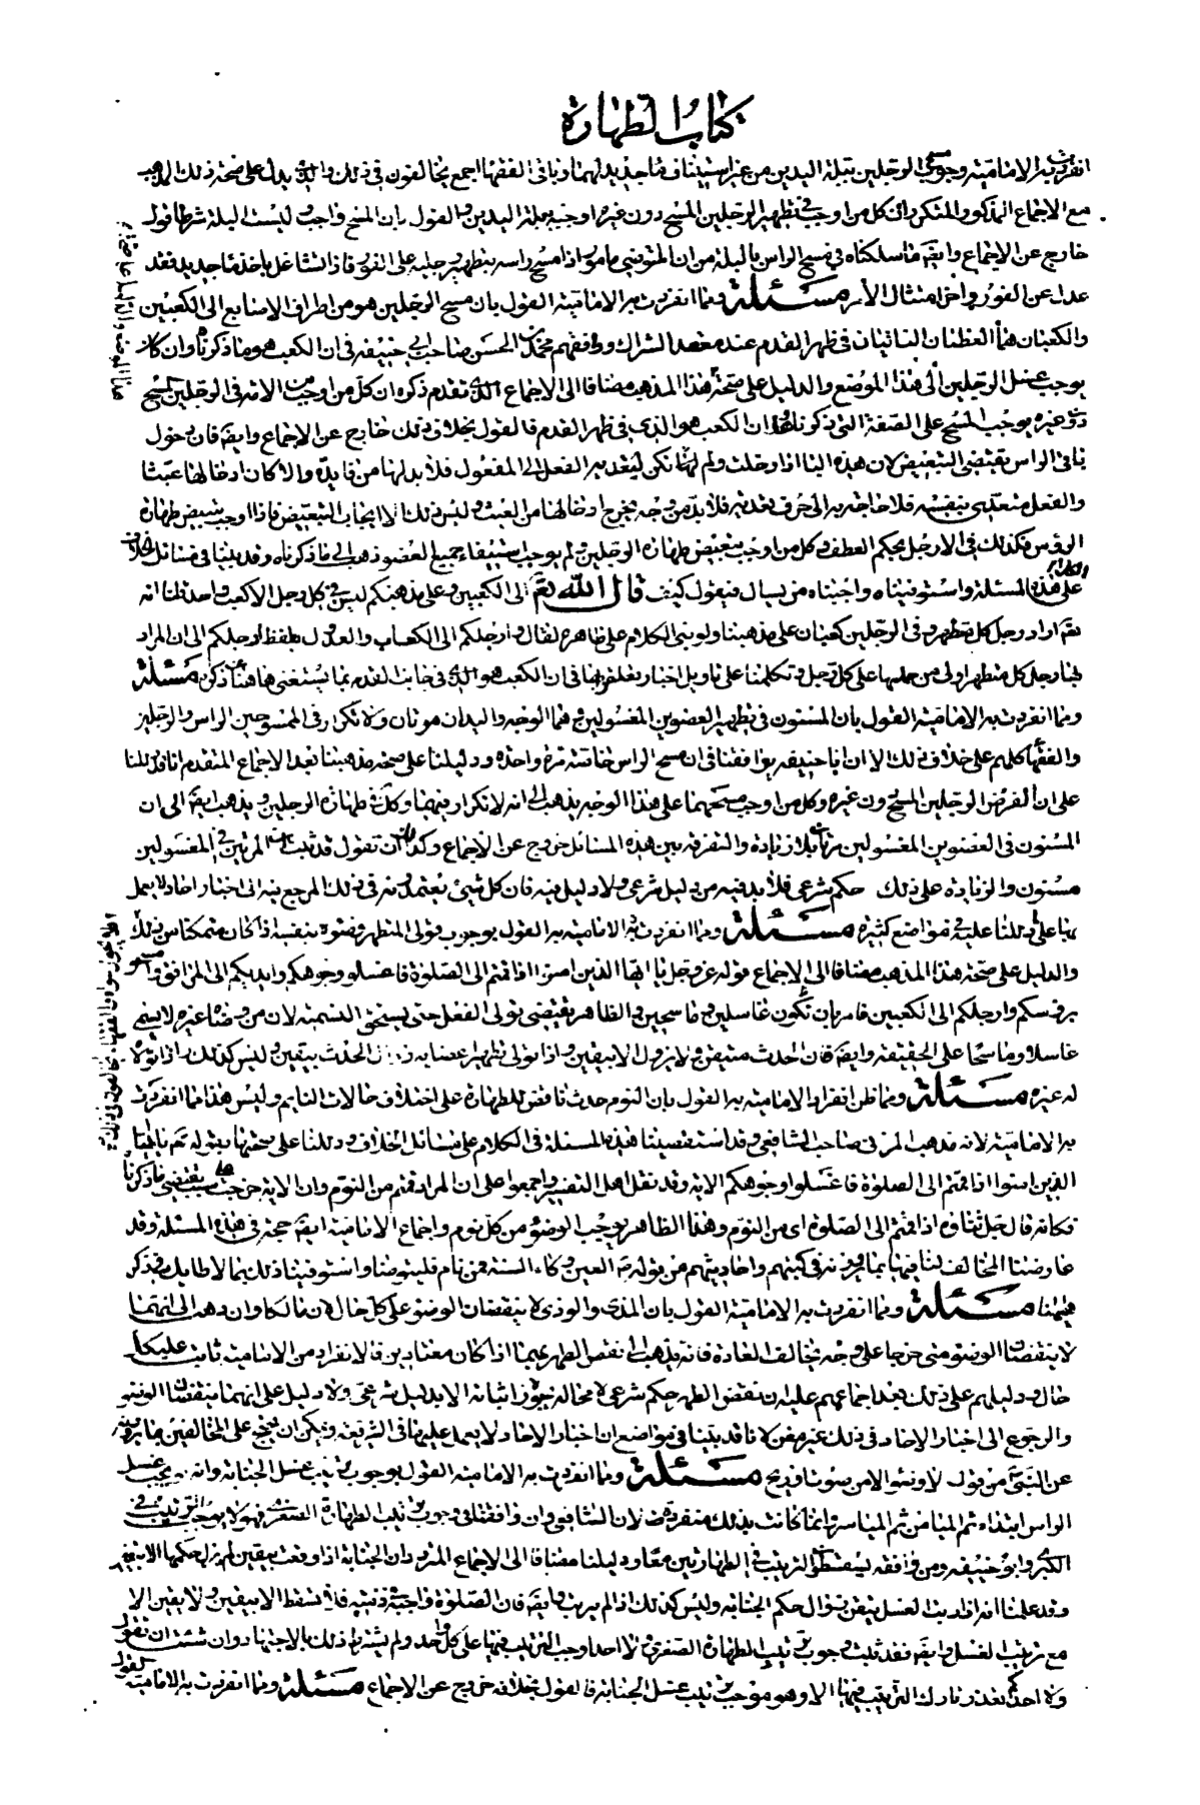 كتاب الطهارة
انفردت به الامامية وجوب مسح الرجلين ببلة اليدين من غير استيناف ماء جديد لهما وباقي الفقهاء اجمع يخالفون في ذلك والذي يدل على صحة ذلك المذهب
مع الاجماع المذكور المتكرر ان كل من اوجب في تطهير الرجلين المسح دون غيره اوجبه ببلة اليدين والقول بان المسح واجب وليست البلة شرطا قول
خارج عن الاجماع وايضا ما سلكناه في مسح الراس بالبلة من ان المتوضي مامور اذا مسح راسه بتطهير رجليه على الفور فاذا تشاغل باخذ ماء جديد فقد
عدل عن الفور واخر امتثال الأمر مسئلة ومما انفردت به الامامية القول بان مسح الرجلين هو من اطراف الاصابع الى الكعبين
والكعبان هما العظمان الناتيان في ظهر القدم عند معقد الشراك ووافقهم محمد بن الحسن صاحب ابي حنيفه في ان الكعب هو ما ذكرناه وان كان
يوجب غسل الرجلين الى هذا الموضع والدليل على صحة هذا المذهب مضافا الى الاجماع الذي تقدم ذكره ان كل من اوجب من الامة في الرجلين المسح
دون غيره يوجب المسح على الصفة التي ذكرناها وان الكعب هو الذي في ظهر القدم فالقول بخلاف ذلك خارج عن الاجماع وايضا فان دخول
باء في الراس يقتضي التبعيض لان هذه الباء اذا دخلت ولم تكن لتعدية الفعل الى المفعول فلا بد لها من فايدة والا كان ادخالها عبثا
والفعل متعدي بنفسه فلا حاجة به الى حرف تعدية فلا بد من وجه يخرج ادخالها من العبث وليس ذلك الا ايجاب التبعيض فاذا اوجب تبعيض طهارة
الرؤس فكذلك في الارجل بحكم العطف وكل من اوجب تبعيض طهارة الرجلين ولم يوجب استيفاء جميع العضو ذهب الى ما ذكرناه وقد بينا في مسائل الخلاف
الكلام على هذه المسئلة واستوفيناه واجبنا من يسال فيقول كيف قال الله تعالى الى الكعبين وعلى مذهبكم ليس في كل رجل الا كعب واحد قلنا انه
تعالى اراد رجل كل متطهر وفي الرجلين كعبان على مذهبنا ولو بنى الكلام على ظاهره لقال وارجلكم الى الكعاب والعدول بلفظ ارجلكم الى ان المراد
بها رجل كل متطهر اولى من حملها على كل رجل وتكلمنا على تاويل اخبار تعلقوا بها في ان الكعب هو الذي في جانب القدم بما يستغنى هاهنا عن ذكره مسئلة
ومما انفردت به الامامية القول بان المسنون في تطهير العضوين المغسولين وهما الوجه واليدان مرتان ولا تكرار في الممسوحين الراس والرجلين
والفقهاء كلهم على خلاف ذلك الا ان ابا حنيفه يوافقنا في ان مسح الراس خاصة مرة واحدة ودليلنا على صحة مذهبنا بعد الاجماع المتقدم انا قد دللنا
على ان الفرض في الرجلين المسح دون غيره وكل من اوجب مسحهما على هذا الوجه يذهب الى انه لا تكرار فيهما وكل في طهارة الرجلين يذهب ايضا الى ان
المسنون في العضوين المغسولين مرتان بلا زيادة والتفرقة بين هذه المسائل خروج عن الاجماع ولك ان تقول قد ثبت ان المرتين في المغسولين
مسنون والزيادة على ذلك حكم شرعي فلا بد فيه من دليل شرعي ولا دليل فيه فان كل شيئ يعتمدونه في ذلك المرجع فيه الى اخبار احاد لا يعمل
بها على ما دللنا عليه في مواضع كثيرة مسئلة ومما انفردت به الامامية القول بوجوب تولي المتطهر وضوئه بنفسه اذا كان متمكنا من ذلك
والدليل على صحة هذا المذهب مضافا الى الاجماع قوله عز وجل يا ايها الذين امنوا اذا قمتم الى الصلوة فاغسلوا وجوهكم وايديكم الى المرافق وامسحوا
برؤسكم وارجلكم الى الكعبين فامر بان نكون غاسلين وماسحين والظاهر يقتضي تولي الفعل حتى يستحق التسمية لان من وضاه غيره لا يسمى
غاسلا وماسحا على الحقيقة وايضا فان الحدث متيقن ولا يزول الا بيقين واذا تولى تطهير اعضايه زال الحدث بيقين وليس كذلك اذا تولاه
له غيره مسئلة ومما ظن انفراد الامامية به القول بان النوم حدث ناقض للطهارة على اختلاف حالات النايم وليس هذا مما انفردت
به الامامية لانه مذهب المزني صاحب الشافعي وقد استقصينا هذه المسئلة في الكلام على مسائل الخلاف ودللنا على صحتها بقوله تعالى يا ايها
الذين امنوا اذا قمتم الى الصلوة فاغسلوا وجوهكم الاية وقد نقل اهل التفسير واجمعوا على ان المراد قمتم من النوم وان الاية خرجت على سبب يقتضي ما ذكرناه
فكانه قال جل ثناؤه اذا قمتم الى الصلوة من النوم وهذا الظاهر يوجب الوضوء من كل نوم واجماع الامامية ايضا حجة في هذه المسئلة وقد
عارضنا المخالف لنا فيها بما يروونه في كتبهم واحاديثهم من قوله ص العين وكاء السنة فمن نام فليتوضا واستوفينا ذلك بما لا طايل في ذكره
هيهنا مسئلة ومما انفردت به الامامية القول بان المذي والوذي لا ينقضان الوضوء على كل حال لان مالكا وان ذهب الى انهما
لا ينقضان الوضوء متى خرجا على وجه يخالف العادة فانه يذهب الى نقض الطهر بهما اذا كان معتادين فالانفراد من الامامية ثابت على كل
حال ودليلهم على ذلك بعد اجماعهم عليه ان نقض الطهر حكم شرعي لا محالة لا يجوز اثباته الا بدليل شرعي ولا دليل على انهما ينقضان الوضوء
والرجوع الى اخبار الاحاد في ذلك غير مغن لانا قد بينا في مواضع ان اخبار الاحاد لا يعمل عليها في الشريعة ويمكن ان يحتج على المخالفين بما يروونه
عن النبي ص من قوله لا وضوء الا من صوت او ريح مسئلة ومما انفردت به الامامية القول بوجوب ترتيب غسل الجنابة وانه يجب غسل
الراس ابتداء ثم الميامن ثم المياسر وانما كانت بذلك منفردة لان الشافعي وان وافقنا في وجوب ترتيب الطهارة الصغرى فهو لا يوجب الترتيب في
الكبرى وابو حنيفه ومن وافقه يسقط الترتيب في الطهارتين معا ودليلنا مضافا الى الاجماع المتردد ان الجنابة اذا وقعت بيقين لم يزل حكمها الا بيقين
وقد علمنا انه اذا رتب الغسل تيقن زوال حكم الجنابة وليس كذلك اذا لم يرتب وايضا فان الصلوة واجبة في ذمته فلا تسقط الا بيقين ولا يقين الا
مع ترتيب الغسل وايضا فقد ثبت وجوب ترتيب الطهارة الصغرى ولا احد اوجب الترتيب فيها على كل واحد ولم يشترط ذلك بالاجتهاد وان شئت ان تقول
ولا احد يعذر تارك الترتيب فيها الا وهو موجب ترتيب غسل الجنابة فالقول بخلافه خروج عن الاجماع مسئلة ومما انفردت به الامامية القول